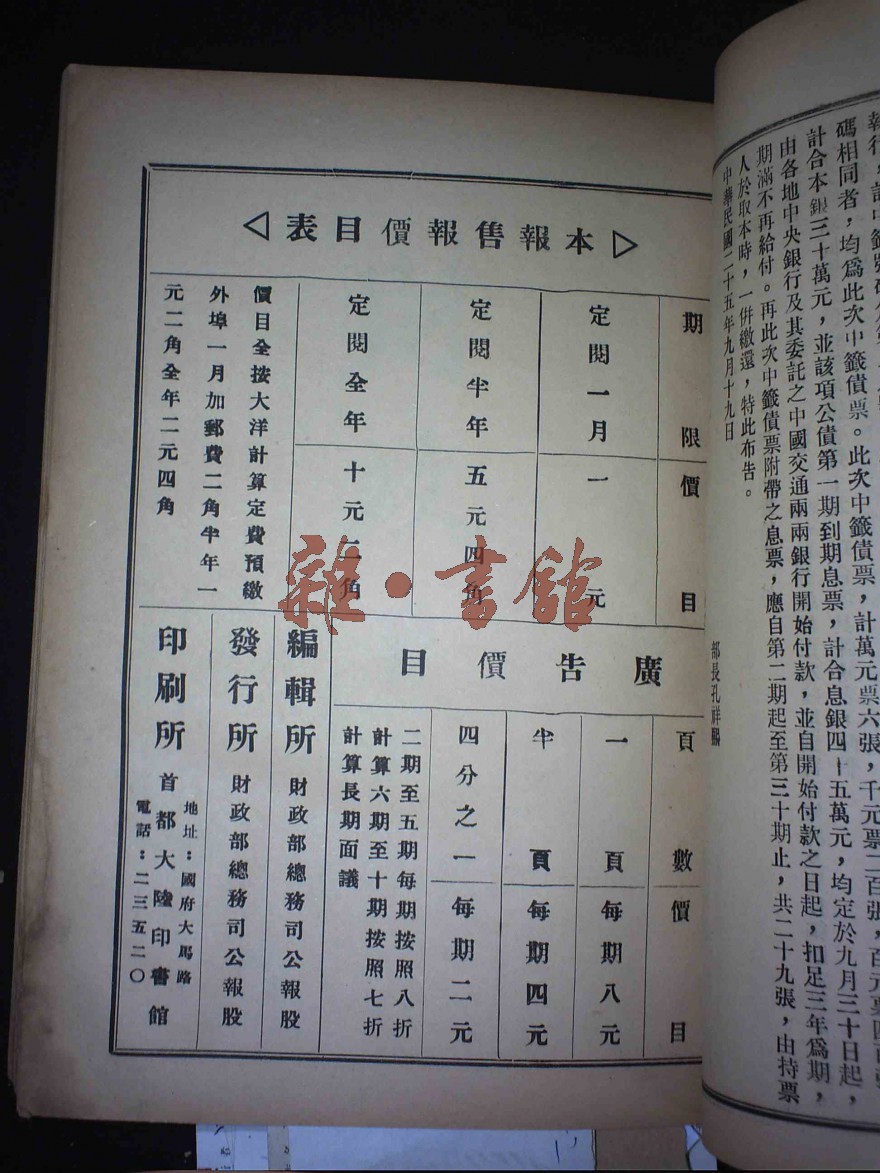 碼相同者，均爲此次中籤債票。此次中籤債票，計萬元票六張，千元票二百張，百元票四百張
計合本銀三十萬元，並該項公債第一期到期息票，計合息銀四十五萬元，均定於九月三十日起，
由各地中央銀行及其委託之中國交通兩兩銀行開始付款，並自開始付款之日起，扣足三年爲期，
期滿不再給付。再此次中籤債票附帶之息票，應自第二期起至第三十期止，共二十九張，由持票
人於取本時，一併繳還，特此布告。
中華民國二十五年九月十九日
部長孔祥熙
▷本報售報價目表◁
期限 價目
定閱一月 一元
定閱半年 五元四角
定閱全年 十元二角
價目全按大洋計算定費預繳
外埠一月加郵費二角半年一
元二角全年二元四角
廣告價目
頁數 價目
一頁 每期八元
半頁 每期四元
四分之一 每期二元
二期至五期每期按照八折
計算六期至十期按照七折
計算長期面議
編輯所 財政部總務司公報股
發行所 財政部總務司公報股
印刷所 首都大陸印書館
地址：國府大馬路
電話：二三五二〇
雜·書館